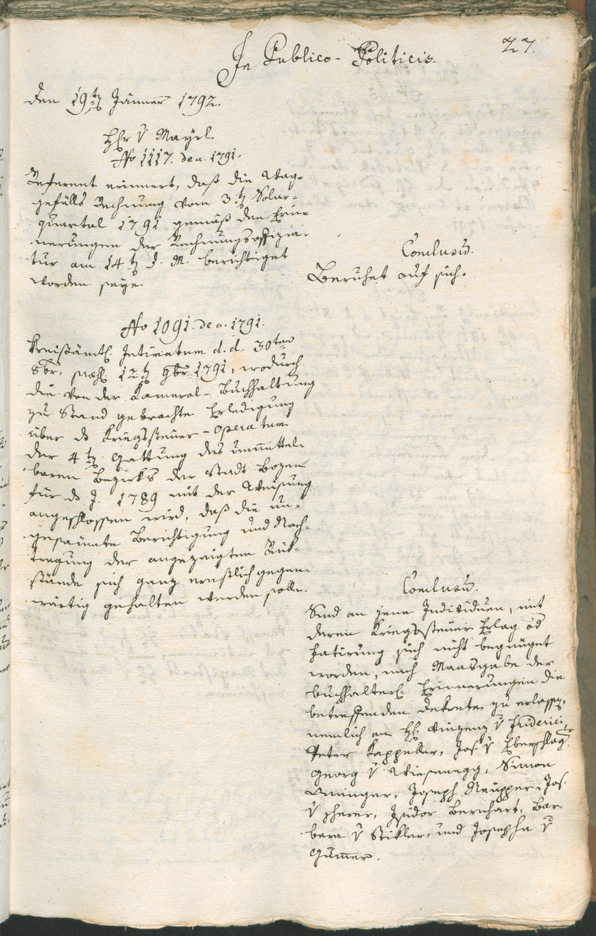 27.
In Publico-Politicis.
den 19ten Jänner 1792.
HEr v Mayrl.
No 1117. de a. 1791.
Referent erinnert, daß die Weg-
gefälls Rechnung vom 3ten Solar-
quartal 1791 gemäß den Erin-
nerungen der Rechnungsoffizia-
tur am 14ten d. M. berichtiget
worden seye.
Conclusum.
Beruhet auf sich.
No 1091. de a. 1791.
Kreisämtl. Intimatum d.d. 30ten
8br. 12ten 9br 1791, wodurch
die von der Kameral-Buchhaltung
zu Stand gebrachte Erledigung
über das Kriegssteuer-Operatum
der 4ten Gattung des unmittel-
baren Bezirks der Stadt Bozen
für das J. 1789 mit der Weisung
angeschlossen wird, daß die un-
gesäumte Berichtigung und Nach-
tragung der angezeigten Rük-
stände sich ganz ernstlich gegen-
wärtig gehalten werden solle.
Conclusum.
Sind an jene Individuen, mit
deren Kriegssteuer Erlag od
Fatirung sich nicht begnüget
worden, nach Maasgabe der
buchhalterl. Erinnerungen die
betreffenden Dekrete zu erlassen,
nemlich an H. Vinzenz v Friderici,
Peter Kappeler, Jos. v Eberschlag
Georg v Wiesenegg, Simon
Joseph Jos.
v Isidor Bernhart, Bar-
bara v und Josepha v
Gumer.